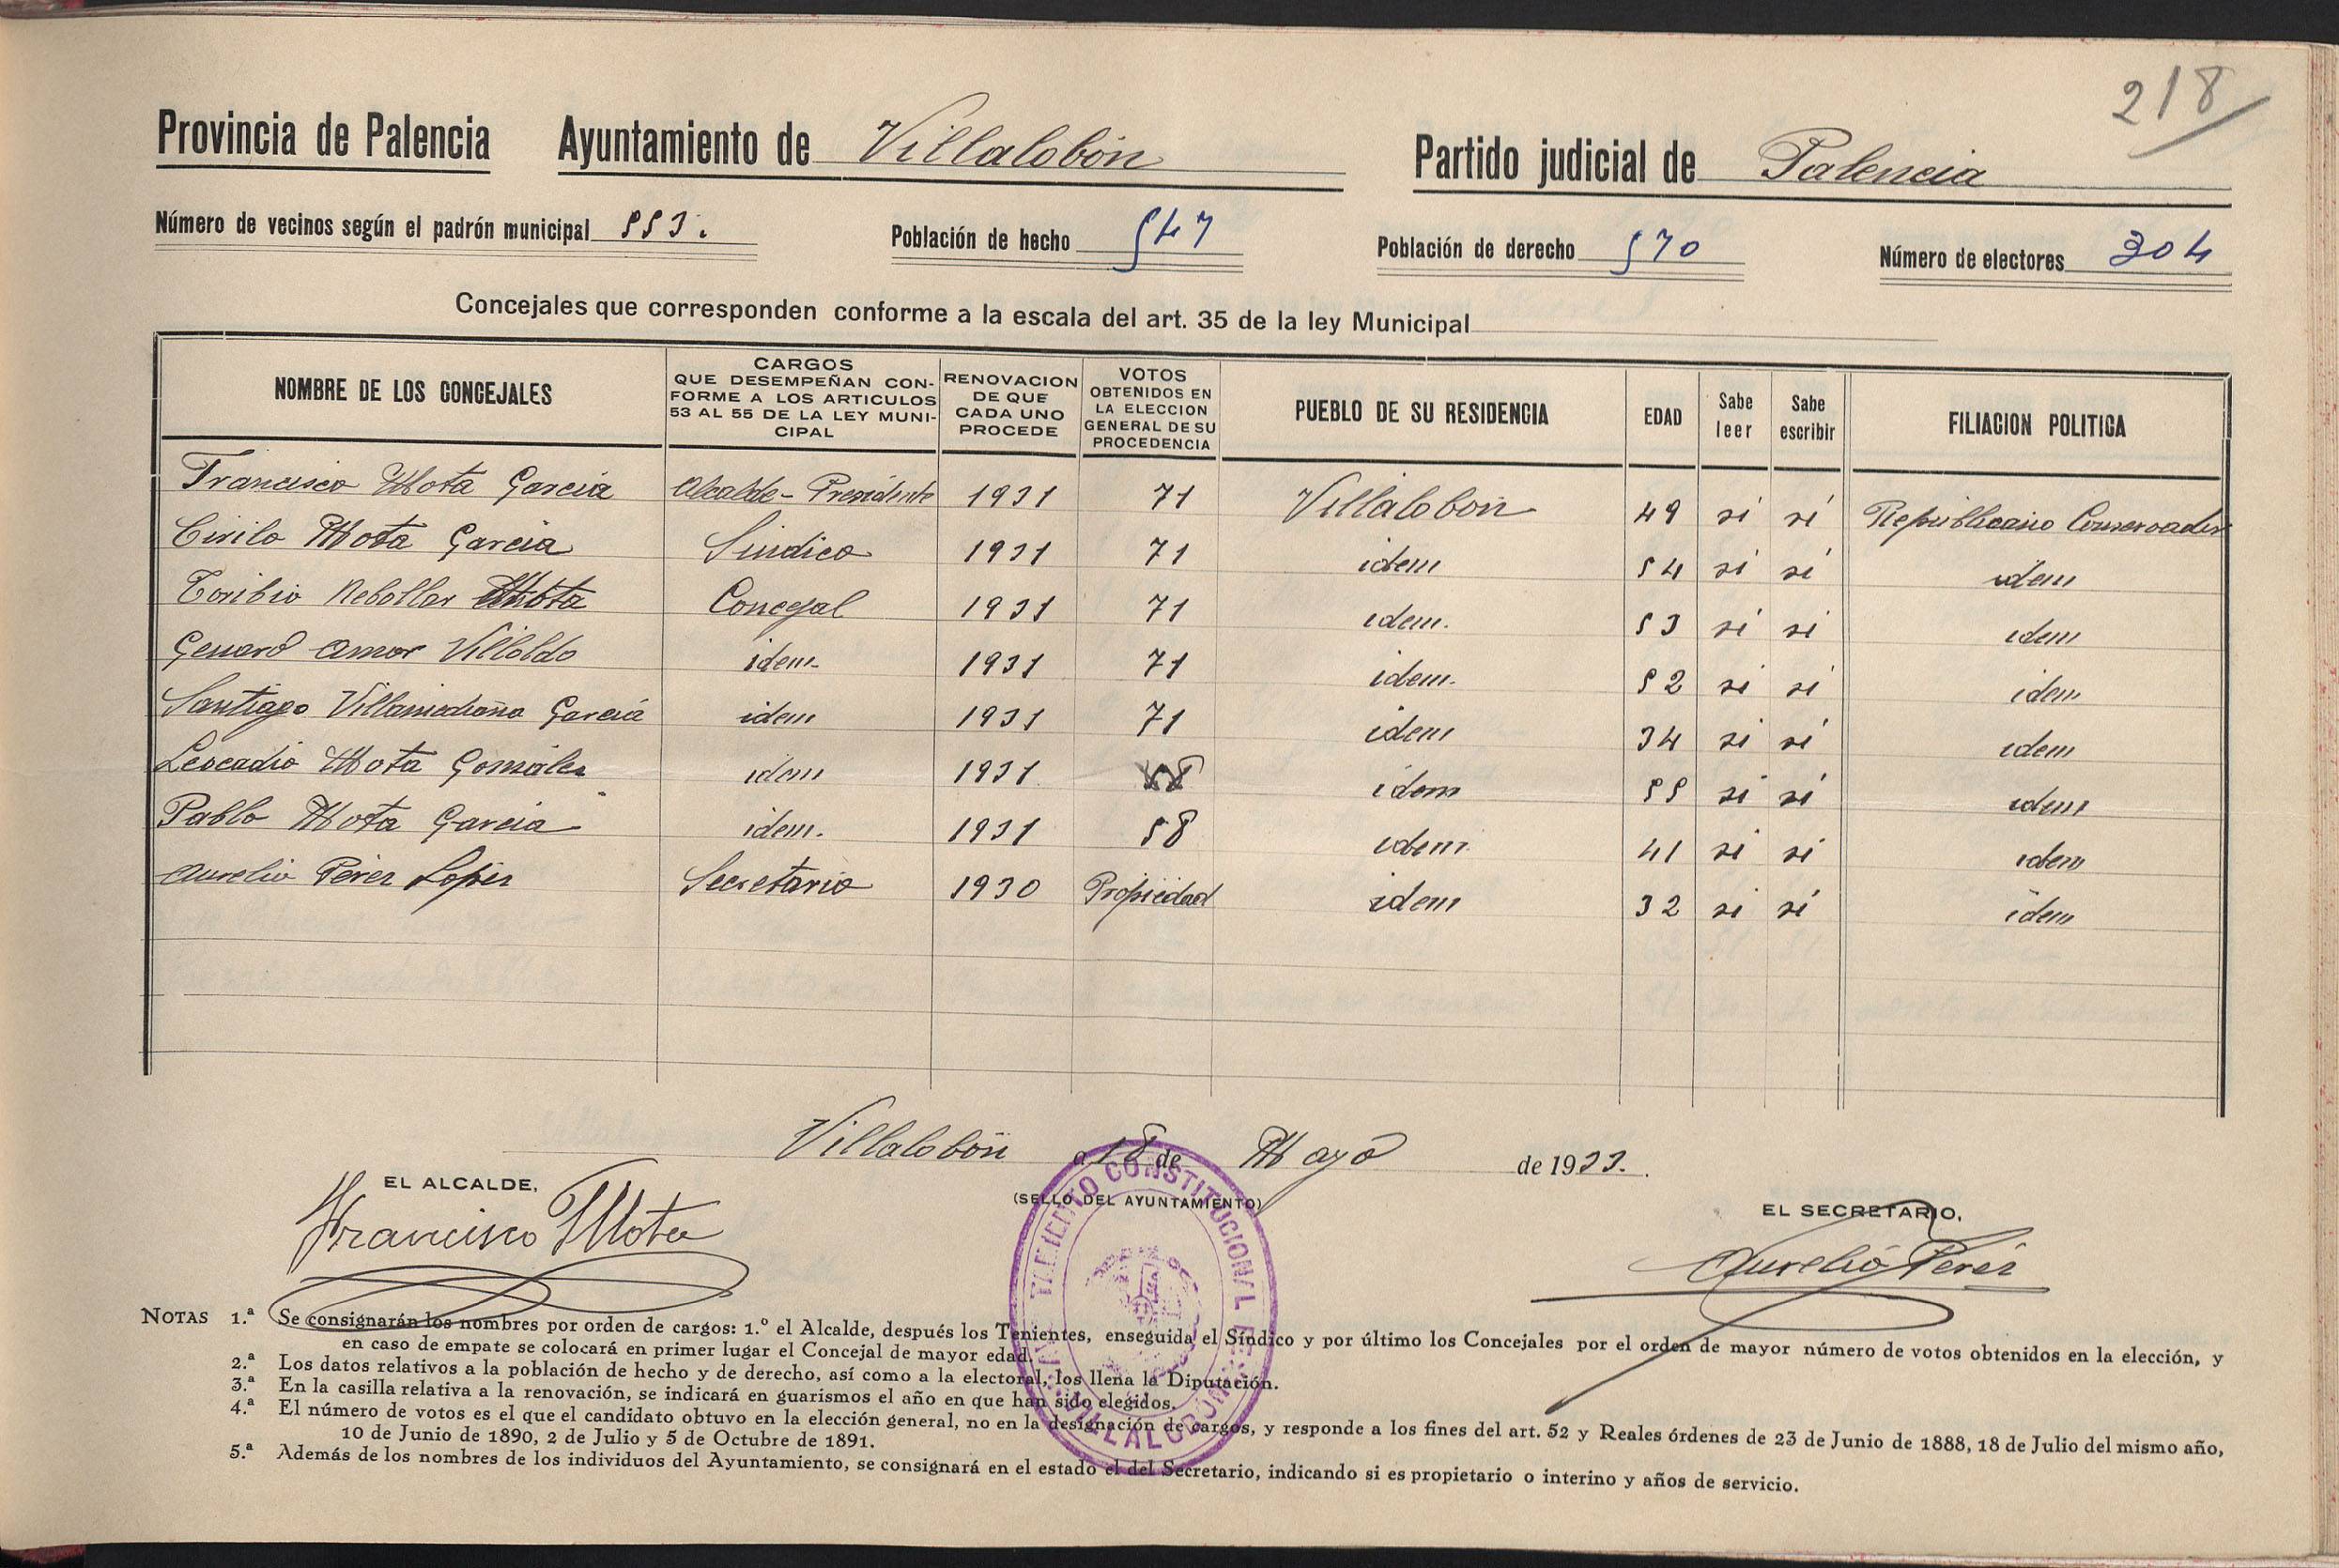 218
Provincia de Palencia Ayuntamiento de Villalobón Partido judicial de Palencia
Número de vecinos según el padrón municipal 553. Población de hecho 547 Población de derecho 570 Número de electores 304
Concejales que corresponden conforme a la escala del art. 35 de la ley Municipal
NOMBRE DE LOS CONCEJALES CARGOS QUE DESEMPEÑAN CONFORME A LOS ARTICULOS 53 AL 55 DE LA LEY MUNICIPAL RENOVACION DE QUE CADA UNO PROCEDE VOTOS OBTENIDOS EN LA ELECCION GENERAL DE SU PROCEDENCIA PUEBLO DE SU RESIDENCIA EDAD Sabe leer Sabe escribir FILIACION POLITICA
Francisco Mota García Alcalde-Presidente 1931 71 Villalobón 49 sí sí Republicano Conservador
Cirilo Mota García Síndico 1931 71 idem 54 sí sí idem
Toribio Rebollar Mota Concejal 1931 71 idem. 53 sí sí idem
Genaro Amor Villoldo idem. 1931 71 idem. 52 sí sí idem
Santiago Villamediana García idem 1931 71 idem 34 sí sí idem
Leocadio Mota González idem 1931 idem 55 sí sí idem
Pablo Mota García idem. 1931 58 idem 41 sí sí idem
Aurelio Pérez López Secretario 1930 Propiedad idem 32 sí sí idem
Villalobón a 18 de Mayo de 1933.
EL ALCALDE,
(SELLO DEL AYUNTAMIENTO)
EL SECRETARIO,
Francisco Mota
Aurelio Pérez
AYUNTAMIENTO CONSTITUCIONAL DE VILLALOBÓN
NOTAS 1.ª Se consignarán los nombres por orden de cargos: 1.º el Alcalde, después los Tenientes, enseguida el Síndico y por último los Concejales por el orden de mayor número de votos obtenidos en la elección, y
en caso de empate se colocará en primer lugar el Concejal de mayor edad.
2.ª Los datos relativos a la población de hecho y de derecho, así como a la electoral, los llena la Diputación.
3.ª En la casilla relativa a la renovación, se indicará en guarismos el año en que han sido elegidos.
4.ª El número de votos es el que el candidato obtuvo en la elección general, no en la designación de cargos, y responde a los fines del art. 52 y Reales órdenes de 23 de Junio de 1888, 18 de Julio del mismo año,
10 de Junio de 1890, 2 de Julio y 5 de Octubre de 1891.
5.ª Además de los nombres de los individuos del Ayuntamiento, se consignará en el estado el del Secretario, indicando si es propietario o interino y años de servicio.